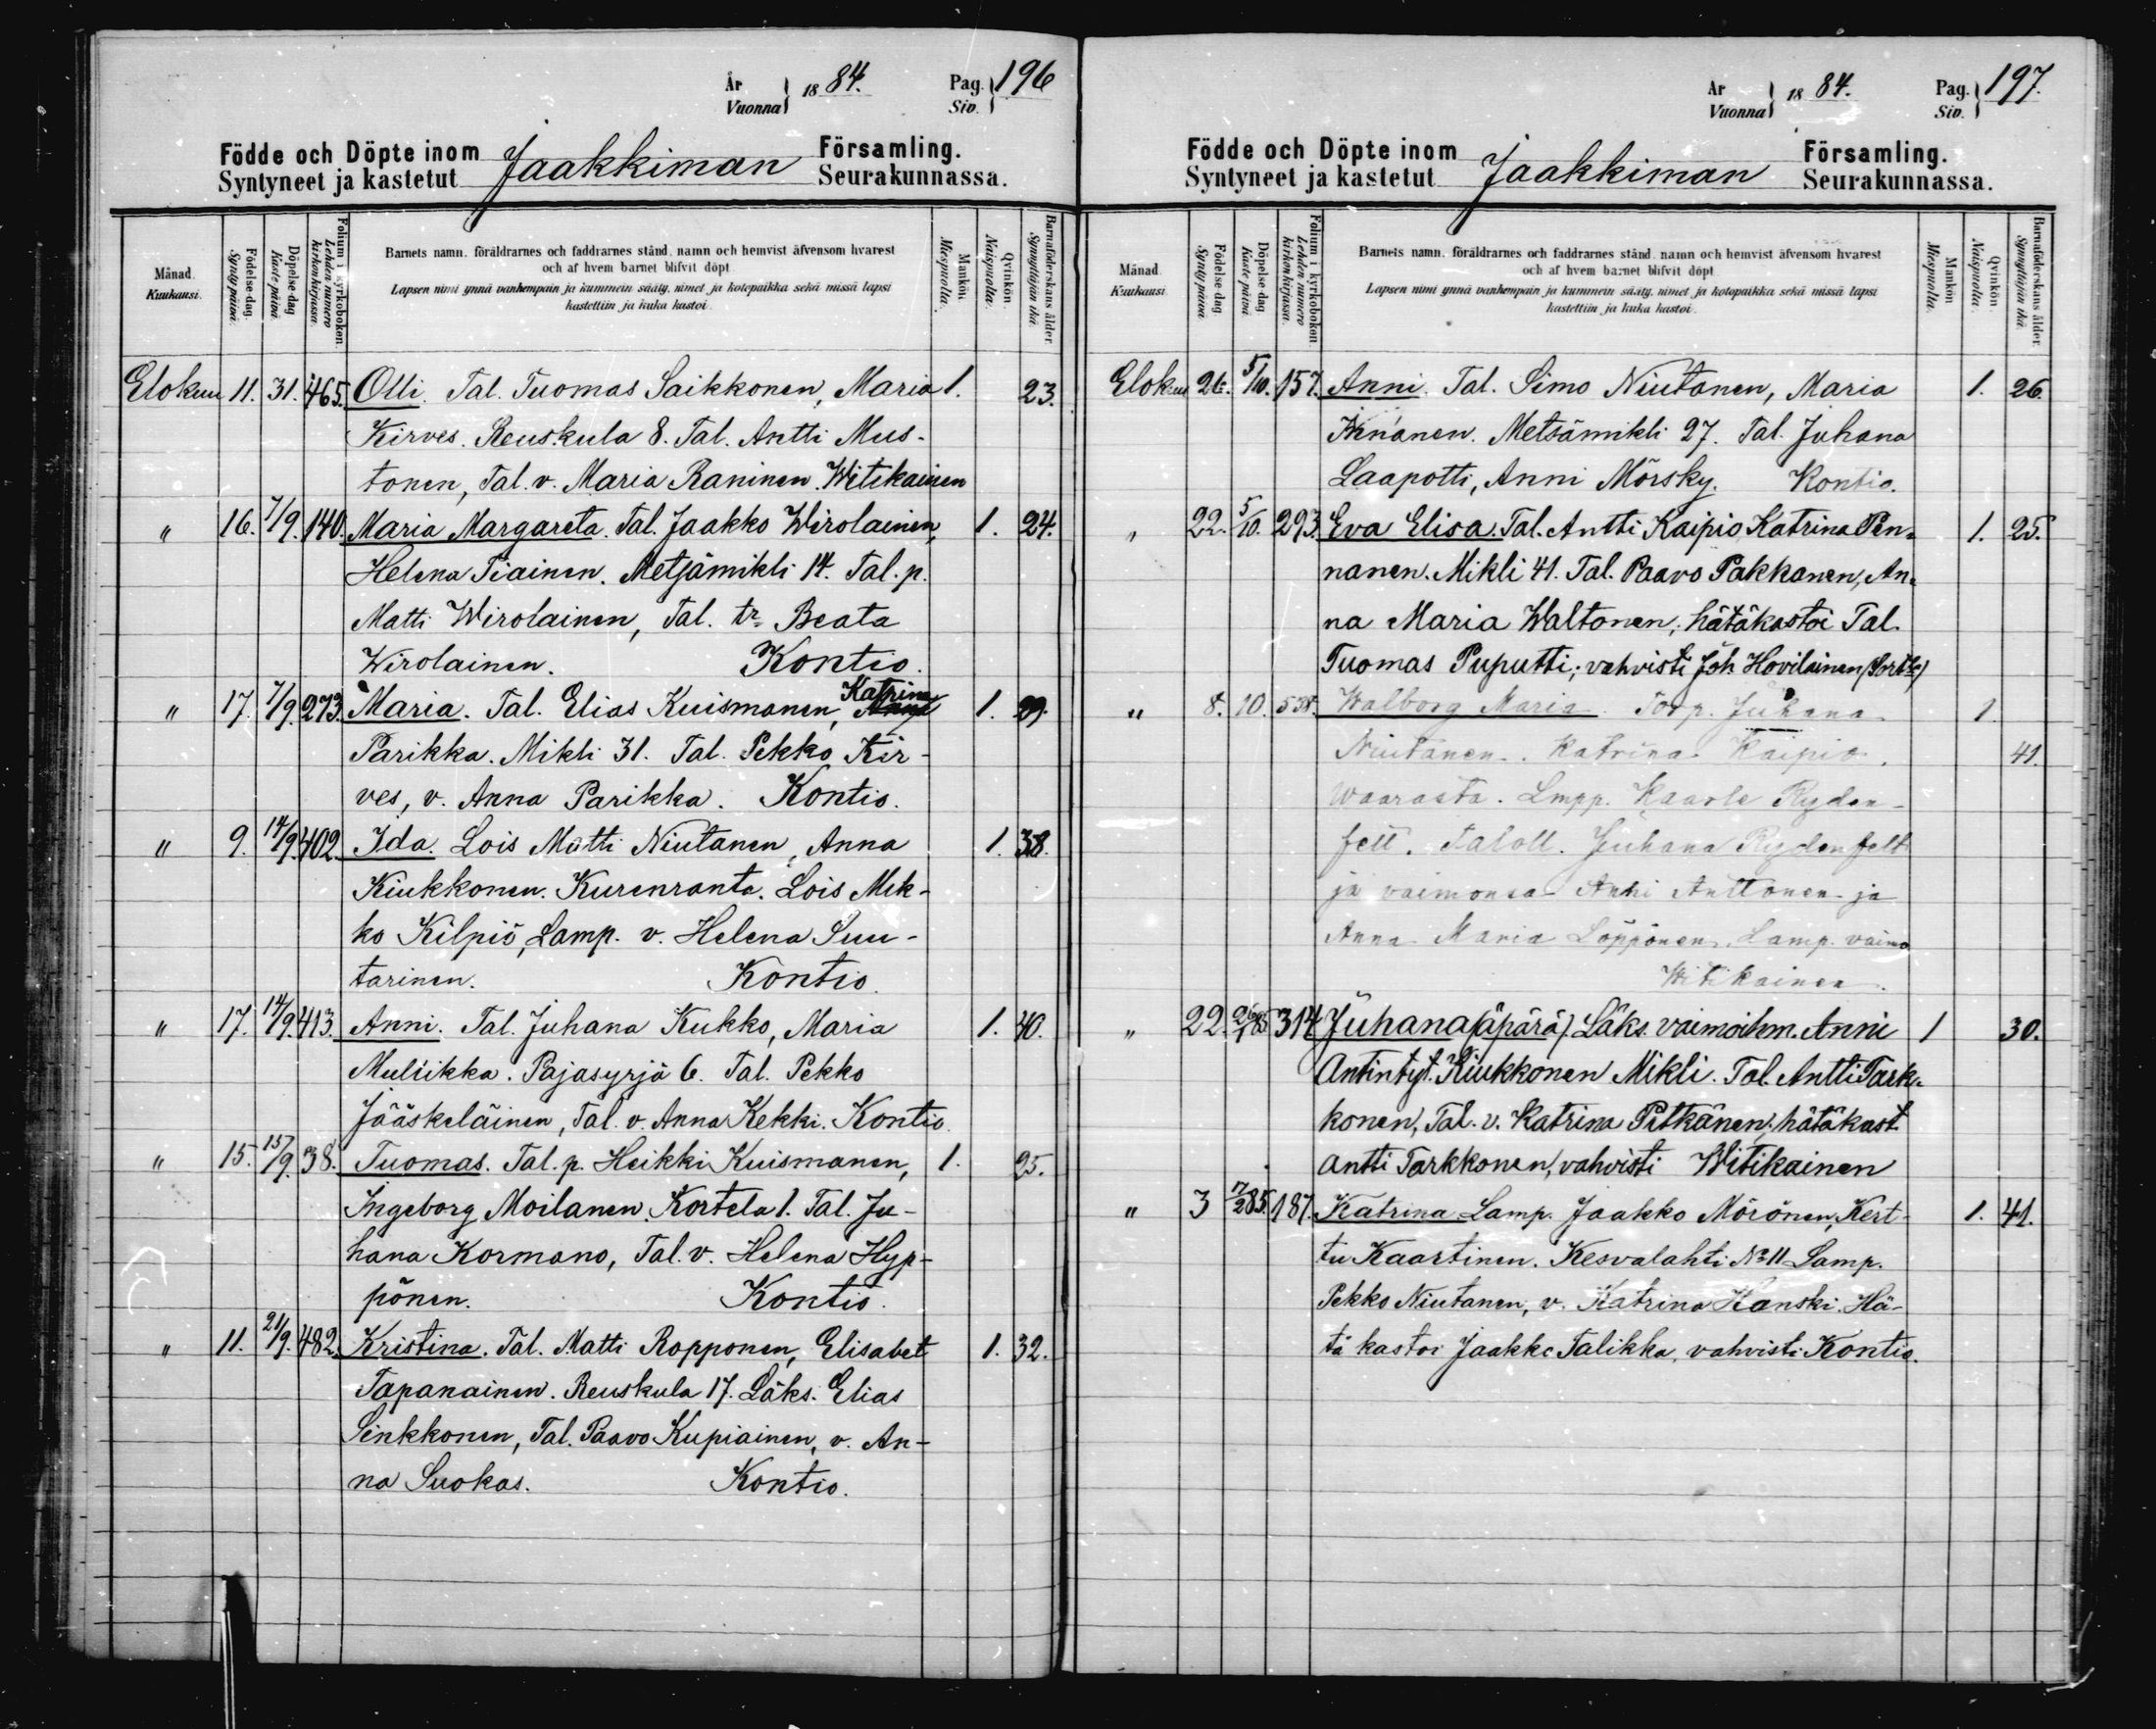 År
Vuonna } 1884. Pag. Siv. } 196
Födde och Döpte inom Jaakkiman Församling.
Syntyneet ja kastetut Seurakunnassa.
Månad. Kuukausi.
Födelse dag. Synty päivä.
Döpelse dag. Kaste päivä.
Folium i kyrkoboken. Lehden numero kirkonkirjassa.
Barnets namn, föräldrarnes och faddrarnes stånd, namn och hemvist äfvensom hvarest
och af hvem barnet blifvit döpt
Lapsen nimi ynnä vanhempain ja kummein sääty, nimet ja kotopaikka sekä missä lapsi
kastettiin ja kuka kastoi.
Mankön. Miespuolta.
Qvinkön. Naispuolta.
Barnaföderskans ålder. Synnyttäjän ikä.
Elokuu 11. 31. 465. Olli. Tal. Tuomas Saikkonen, Maria 1. 23.
Kirves. Reuskula 8. Tal. Antti Mus-
tonen, Tal. v. Maria Raninen. Witikainen
" 16. 7/9. 140. Maria Margareta. Tal. Jaakko Wirolainen, 1. 24.
Helena Tiainen. Metsämikli 14. Tal. p.
Matti Wirolainen, Tal. tr. Beata
Wirolainen. Kontio.
" 17. 7/9. 273. Maria. Tal. Elias Kuismanen, Katrina 1. 29.
Parikka. Mikli 31. Tal. Pekko Kir-
ves, v. Anna Parikka. Kontio.
" 9. 14/9. 402. Ida. Lois Matti Niutanen, Anna 1. 38.
Kiukkonen. Kurenranta. Lois Mik-
ko Kilpiö, Lamp. v. Helena Suu-
tarinen. Kontio.
" 17. 14/9. 413. Anni. Tal. Juhana Kukko, Maria 1. 40.
Muliikka. Pajasyrjä 6. Tal. Pekko
Jääskeläinen, Tal. v. Anna Kekki. Kontio.
" 15. 15/9. 38. Tuomas. Tal. p. Heikki Kuismanen, 1. 25.
Ingeborg Moilanen. Kortela 1. Tal. Ju-
hana Kormano, Tal. v. Helena Hyp-
pönen. Kontio.
" 11. 21/9. 482. Kristina. Tal. Matti Ropponen, Elisabet 1. 32.
Tapanainen. Reuskula 17. Läks. Elias
Sinkkonen, Tal. Paavo Kupiainen, v. An-
na Suokas. Kontio.
År
Vuonna } 1884. Pag. Siv. } 197.
Födde och Döpte inom Jaakkiman Församling.
Syntyneet ja kastetut Seurakunnassa.
Månad. Kuukausi.
Födelse dag. Synty päivä.
Döpelse dag. Kaste päivä.
Folium i kyrkoboken. Lehden numero kirkonkirjassa.
Barnets namn, föräldrarnes och faddrarnes stånd, namn och hemvist äfvensom hvarest
och af hvem barnet blifvit döpt
Lapsen nimi ynnä vanhempain ja kummein sääty, nimet ja kotopaikka sekä missä lapsi
kastettiin ja kuka kastoi.
Mankön. Miespuolta.
Qvinkön. Naispuolta.
Barnaföderskans ålder. Synnyttäjän ikä.
Elokuu 26. 5/10. 157. Anni. Tal. Simo Niutanen, Maria 1. 26.
Metsämikli 27. Tal. Juhana
Laapotti, Anni Mörsky. Kontio.
" 22. 5/10. 293. Eva Elisa. Tal. Antti Kaipio Katrina Pen- 1. 25.
nanen. Mikli 41. Tal. Paavo Pakkanen, An-
na Maria Waltonen; hätäkastoi Tal.
Tuomas Puputti; vahvisti Joh. Hovilainen
" 8. 10. 538. Walborg Maria. Torp. Juhana 1
Niutanen. Katrina Kaipio. 41.
Waarasta. Lmpp. Kaarle Ryden-
felt. Taloll. Juhana Rydenfelt
ja vaimonsa Anni Anttonen ja
Anna Maria Löppönen. Lamp. vaimo
Witikainen.
" 22. 26/1 85 314 Juhana (äpärä). Läks. vaimoihm. Anni 1 30.
Antintyt. Kiukkonen Mikli. Tal. Antti Tark-
konen, Tal. v. Katrina Pitkänen; hätäkast.
Antti Tarkkonen, vahvisti Witikainen
" 3 17/2 85. 187. Katrina. Lamp. Jaakko Mörönen, Kert- 1. 41.
tu Kaartinen. Kesvalahti No 11 Lamp.
Pekko Niutanen, v. Katrina Hanski. Hä-
tä kastoi Jaakko Talikka, vahvisti Kontio.